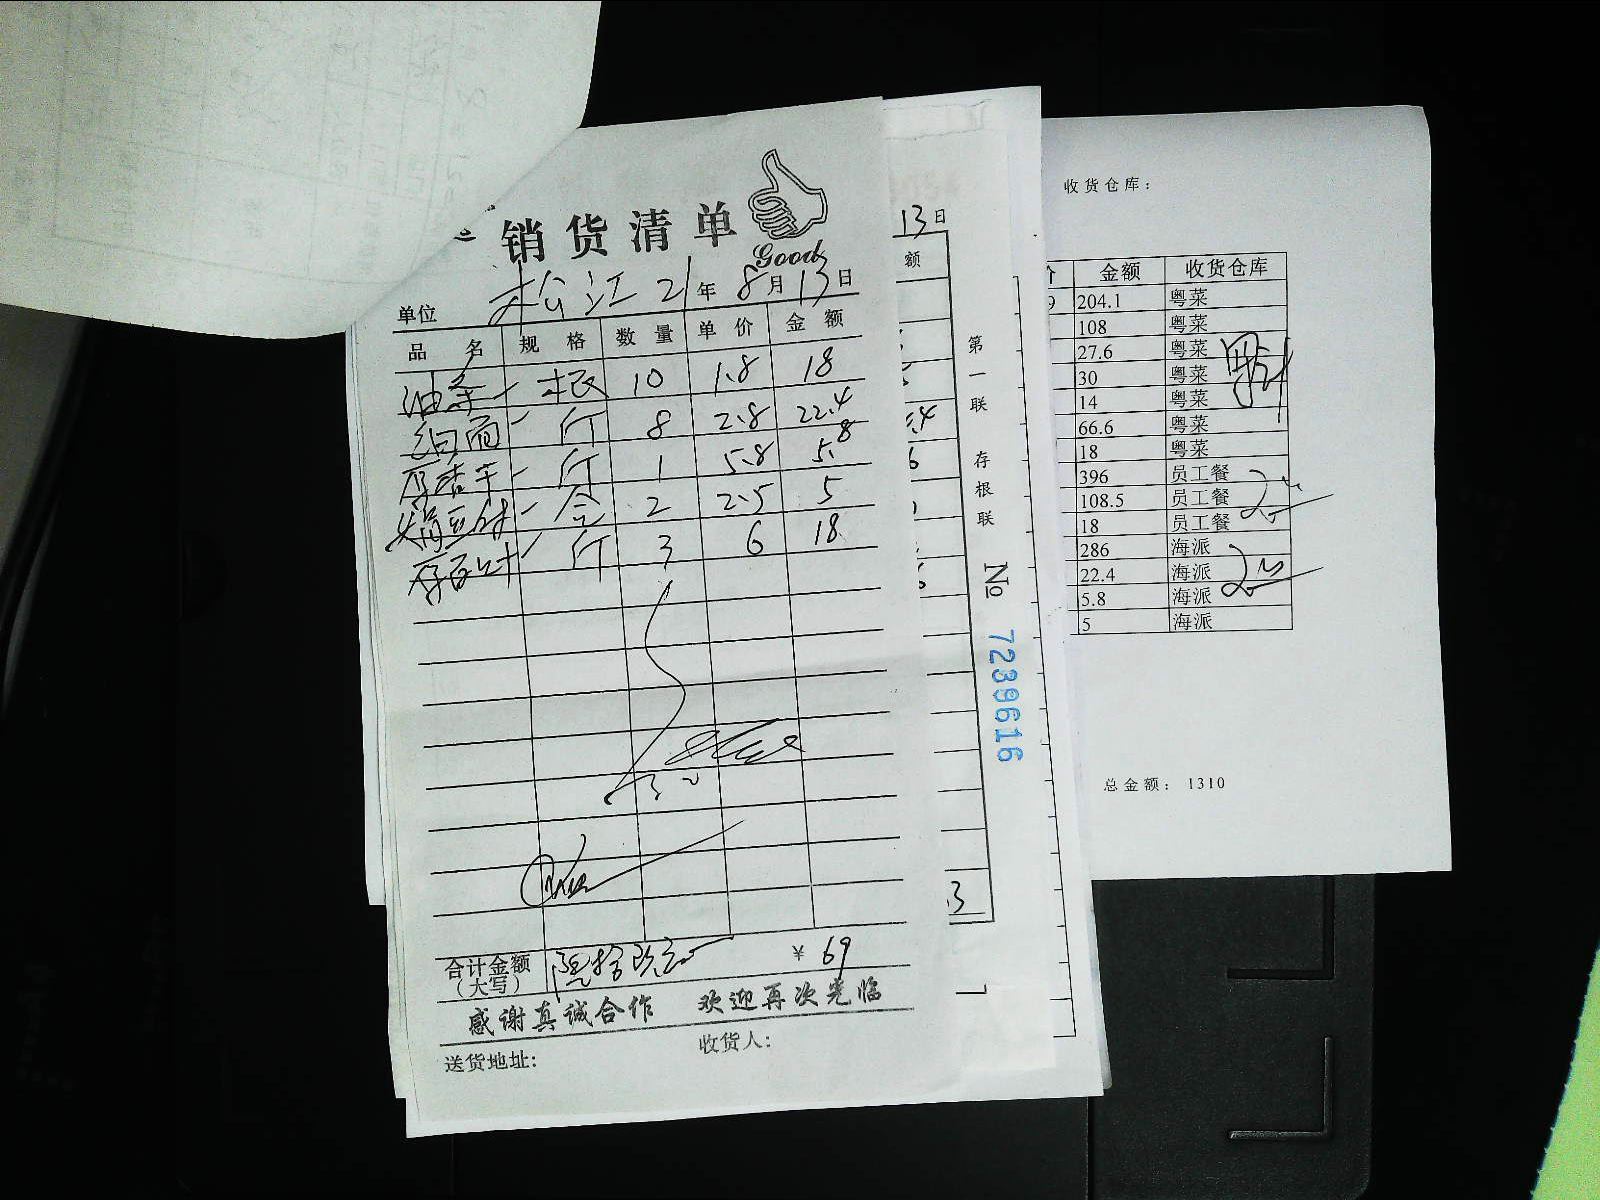 销货清单
Good
单位 松江 21年8月13日
品名 规格 数量 单价 金额
油条 根 10 1.8 18
细面 斤 8 2.8 22.4
厚百叶 斤 3 6 18
斤 1 5.8 5.8
2 2.5 5
合计金额 ¥ 69
(大写) 陆拾玖元
感谢真诚合作 欢迎再次光临
送货地址: 收货人:
13日
额
第一联 存根联
№ 7239616
收货仓库:
价 金额 收货仓库
9 204.1 粤菜
108 粤菜
27.6 粤菜
30 粤菜
14 粤菜
66.6 粤菜
18 粤菜
396 员工餐
108.5 员工餐
18 员工餐
286 海派
22.4 海派
5.8 海派
5 海派
总金额: 1310